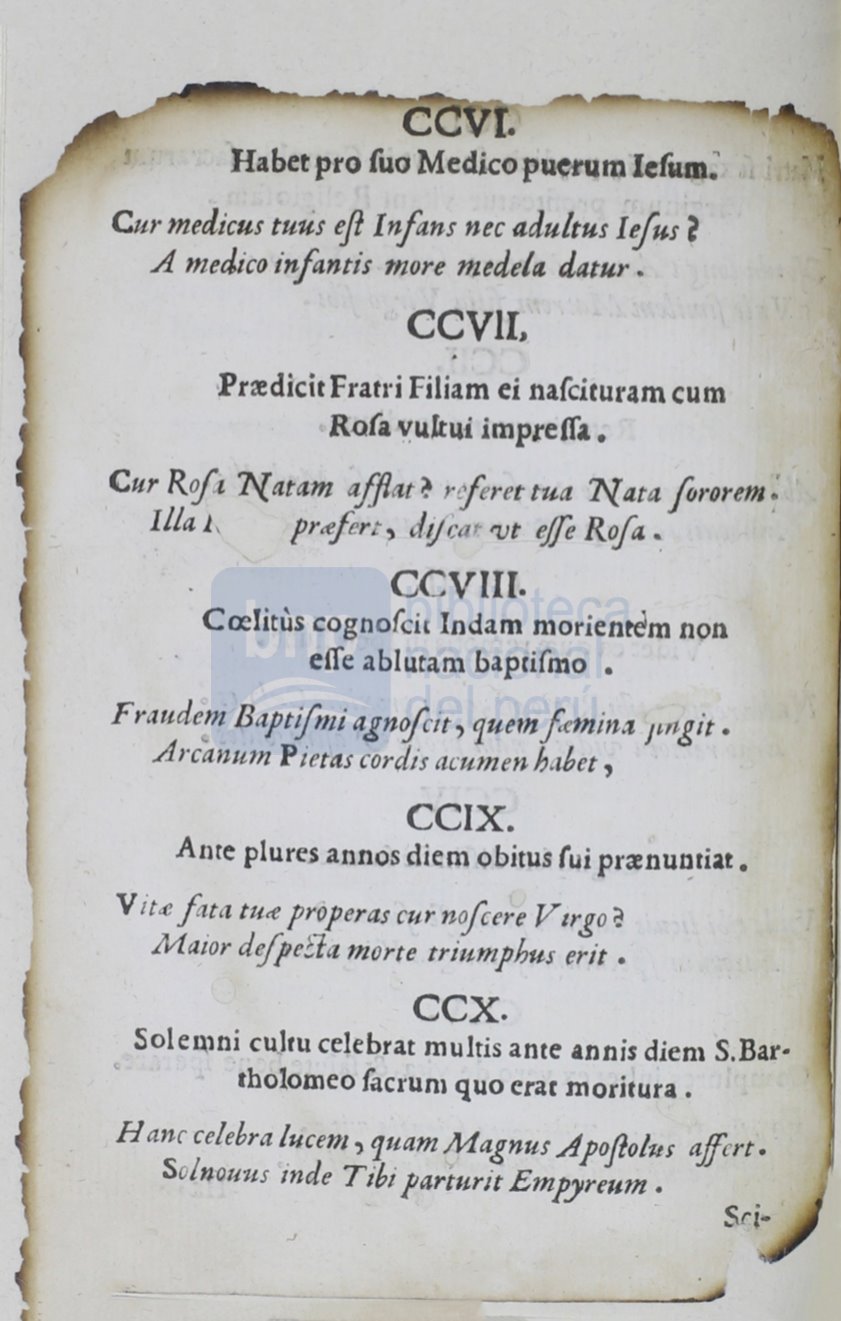 CCVI.
Habet pro ſuo Medico puerum Ieſum.
Cur medicus tuus eſt Infans nec adultus Ieſus?
A medico infantis more medela datur.
CCVII,
Prædicit Fratri Filiam ei naſcituram cum
Roſa vultui impreſſa.
Cur Roſa Natam afflat? referet tua Nata ſororem.
Illa præfert, diſcat vt eſſe Roſa.
CCVIII.
Cœlitùs cognoſcit Indam morientem non
eſſe ablutam baptiſmo.
Fraudem Baptiſmi agnoſcit, quem fæmina fingit.
Arcanum Pietas cordis acumen habet,
CCIX.
Ante plures annos diem obitus ſui prænuntiat.
Vitæ fata tuæ properas cur noſcere Virgo?
Maior deſpecta morte triumphus erit.
CCX.
Solemni cultu celebrat multis ante annis diem S. Bar-
tholomeo ſacrum quo erat moritura.
Hanc celebra lucem, quam Magnus Apoſtolus affert.
Solnouus inde Tibi parturit Empyreum.
Sci-
bnp biblioteca
nacional
del perú